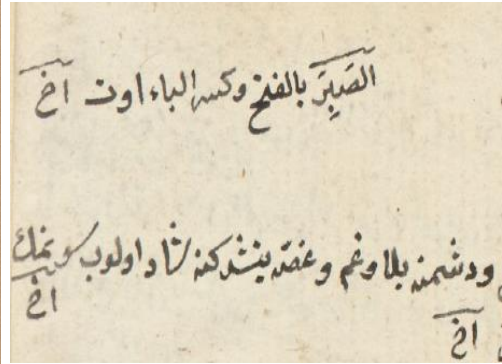 الصَبِرَ بالفتح وكسر الباء اوت اخ
ودشمنه بلا وغم وغصه يتشدكنه شاد اولوب سونمك
اخ
اخ